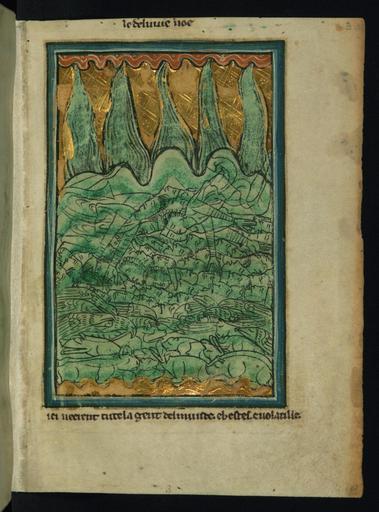 le deluuie noe
ici neeient tute la gent del munde. e bestes. e uolatille.